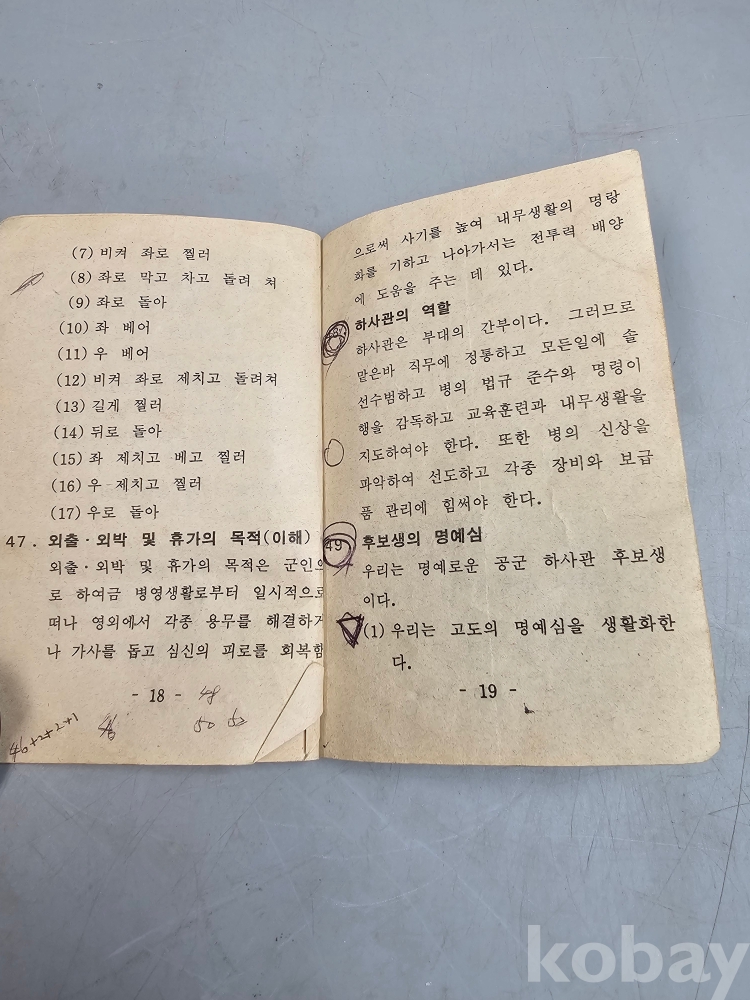 (7) 비켜 좌로 찔러
(8) 좌로 막고 차고 돌려 쳐
(9) 좌로 돌아
(10) 좌 베어
(11) 우 베어
(12) 비켜 좌로 제치고 돌려쳐
(13) 길게 찔러
(14) 뒤로 돌아
(15) 좌 제치고 베고 찔러
(16) 우 제치고 찔러
(17) 우로 돌아
47. 외출·외박 및 휴가의 목적(이해)
외출·외박 및 휴가의 목적은 군인으
로 하여금 병영생활로부터 일시적으로
떠나 영외에서 각종 용무를 해결하거
나 가사를 돕고 심신의 피로를 회복함
- 18 - 48
46+2+2+1 50 52
으로써 사기를 높여 내무생활의 명랑
화를 기하고 나아가서는 전투력 배양
에 도움을 주는 데 있다.
하사관의 역할
하사관은 부대의 간부이다. 그러므로
맡은바 직무에 정통하고 모든일에 솔
선수범하고 병의 법규 준수와 명령이
행을 감독하고 교육훈련과 내무생활을
지도하여야 한다. 또한 병의 신상을
파악하여 선도하고 각종 장비와 보급
품 관리에 힘써야 한다.
49 후보생의 명예심
우리는 명예로운 공군 하사관 후보생
이다.
(1) 우리는 고도의 명예심을 생활화한
다.
- 19 -
kobay